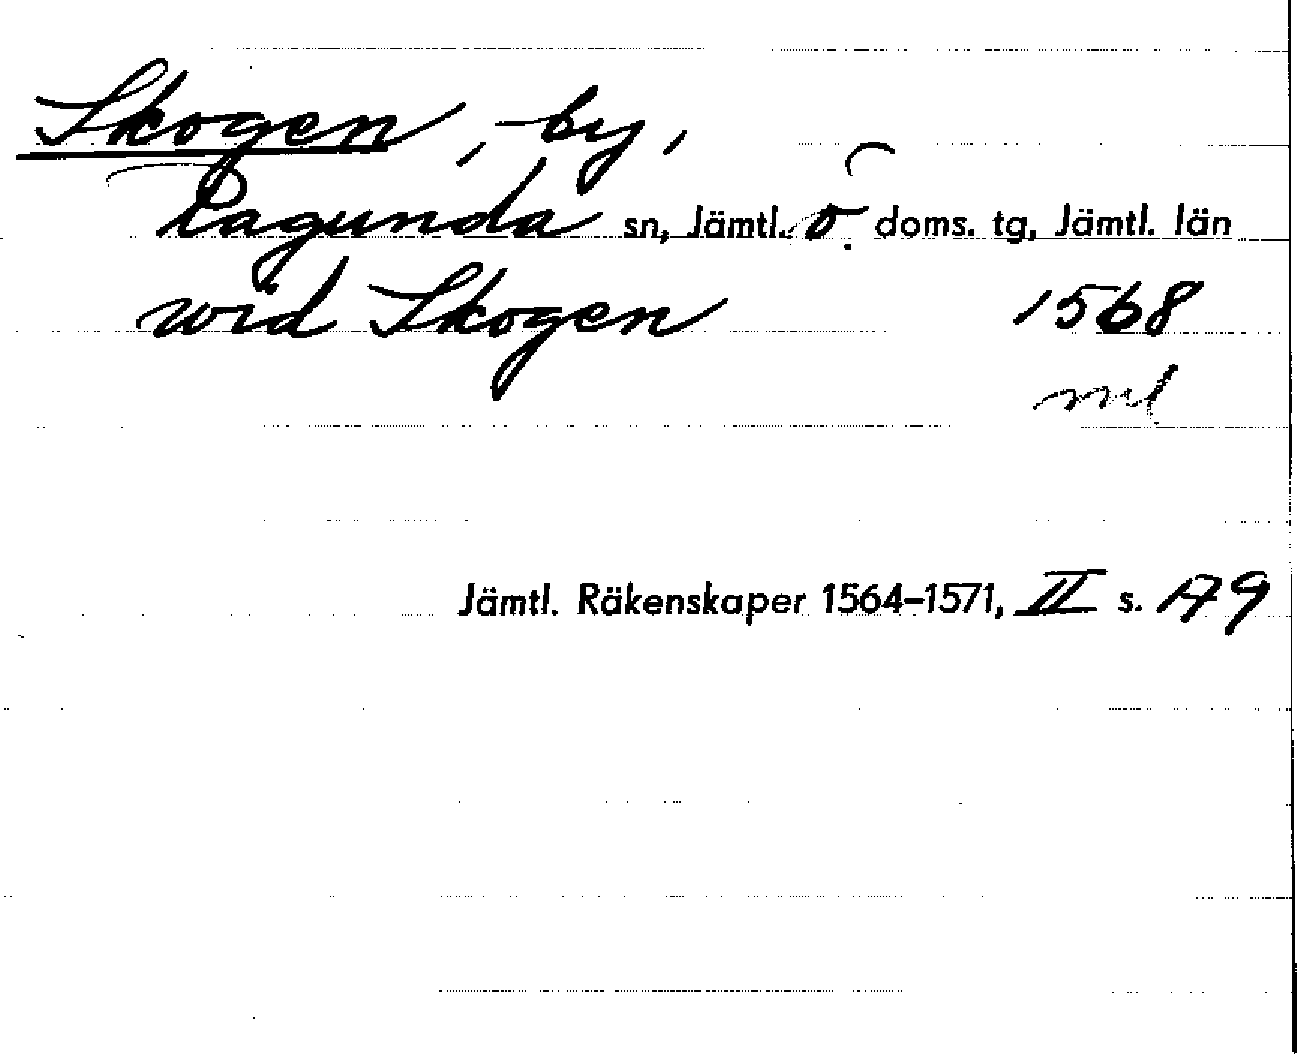 Skogen, by,
Ragunda sn, Jämtl. ö. doms. tg, Jämtl. län
wid Skogen 1568
ml
Jämtl. Räkenskaper 1564–1571, II s. 179